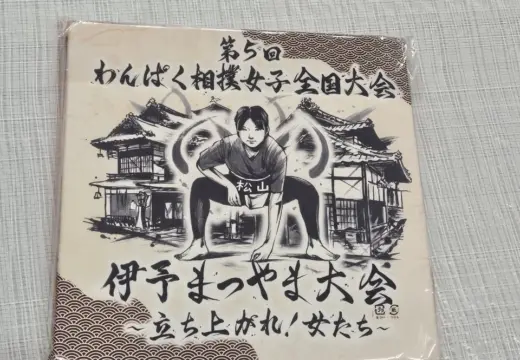 第5回
わんぱく相撲女子全国大会
松山
伊予まつやま大会
～立ち上がれ!女たち～